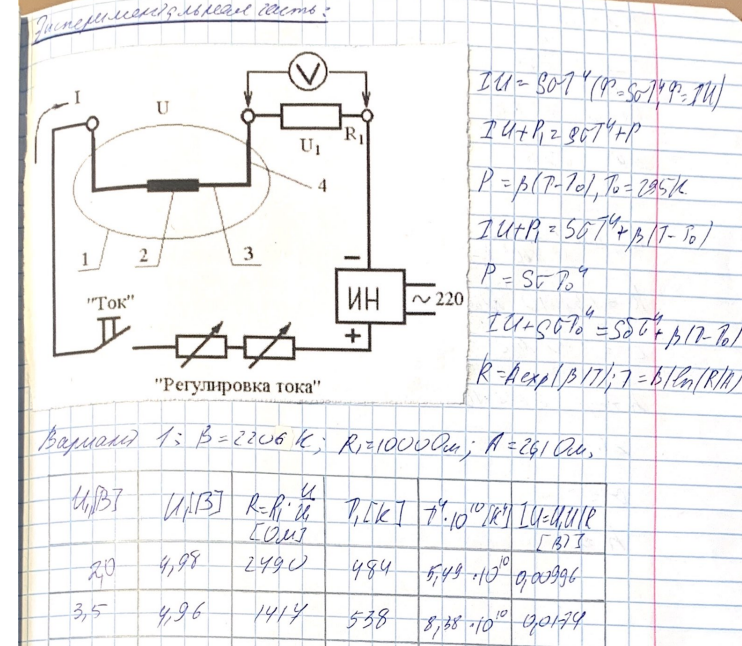 Экспериментальная часть:
I
U
V
U₁
R₁
1
2
3
4
"Ток"
ИН
−
+
~ 220
"Регулировка тока"
IU = SσT⁴ (Φ=SσT⁴, Φ=IU)
IU+P₁ = SσT⁴+P
P = β(T-T₀), T₀ = 295K
IU+P₁ = SσT⁴+β(T-T₀)
P = SσT₀⁴
IU+SσT₀⁴ = SσT⁴+β(T-T₀)
R = A exp(B/T); T = B/ln(R/A)
Вариант 1: B = 2206 K; R₁=1000 Ом; A = 26,1 Ом.
U₁[В] U,[В] R=R₁·U/U₁ [Ом] T,[К] T⁴·10¹⁰[К⁴] IU=U₁U/R [Вт]
2,0 4,98 2490 484 5,49·10¹⁰ 0,00996
3,5 4,96 1417 538 8,38·10¹⁰ 0,0174